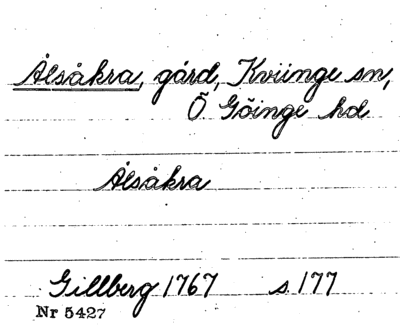 Ålsåkra, gård, Kviinge sn,
Ö Göinge hd
Ålsåkra
Gillberg 1767 s 177
Nr 5427